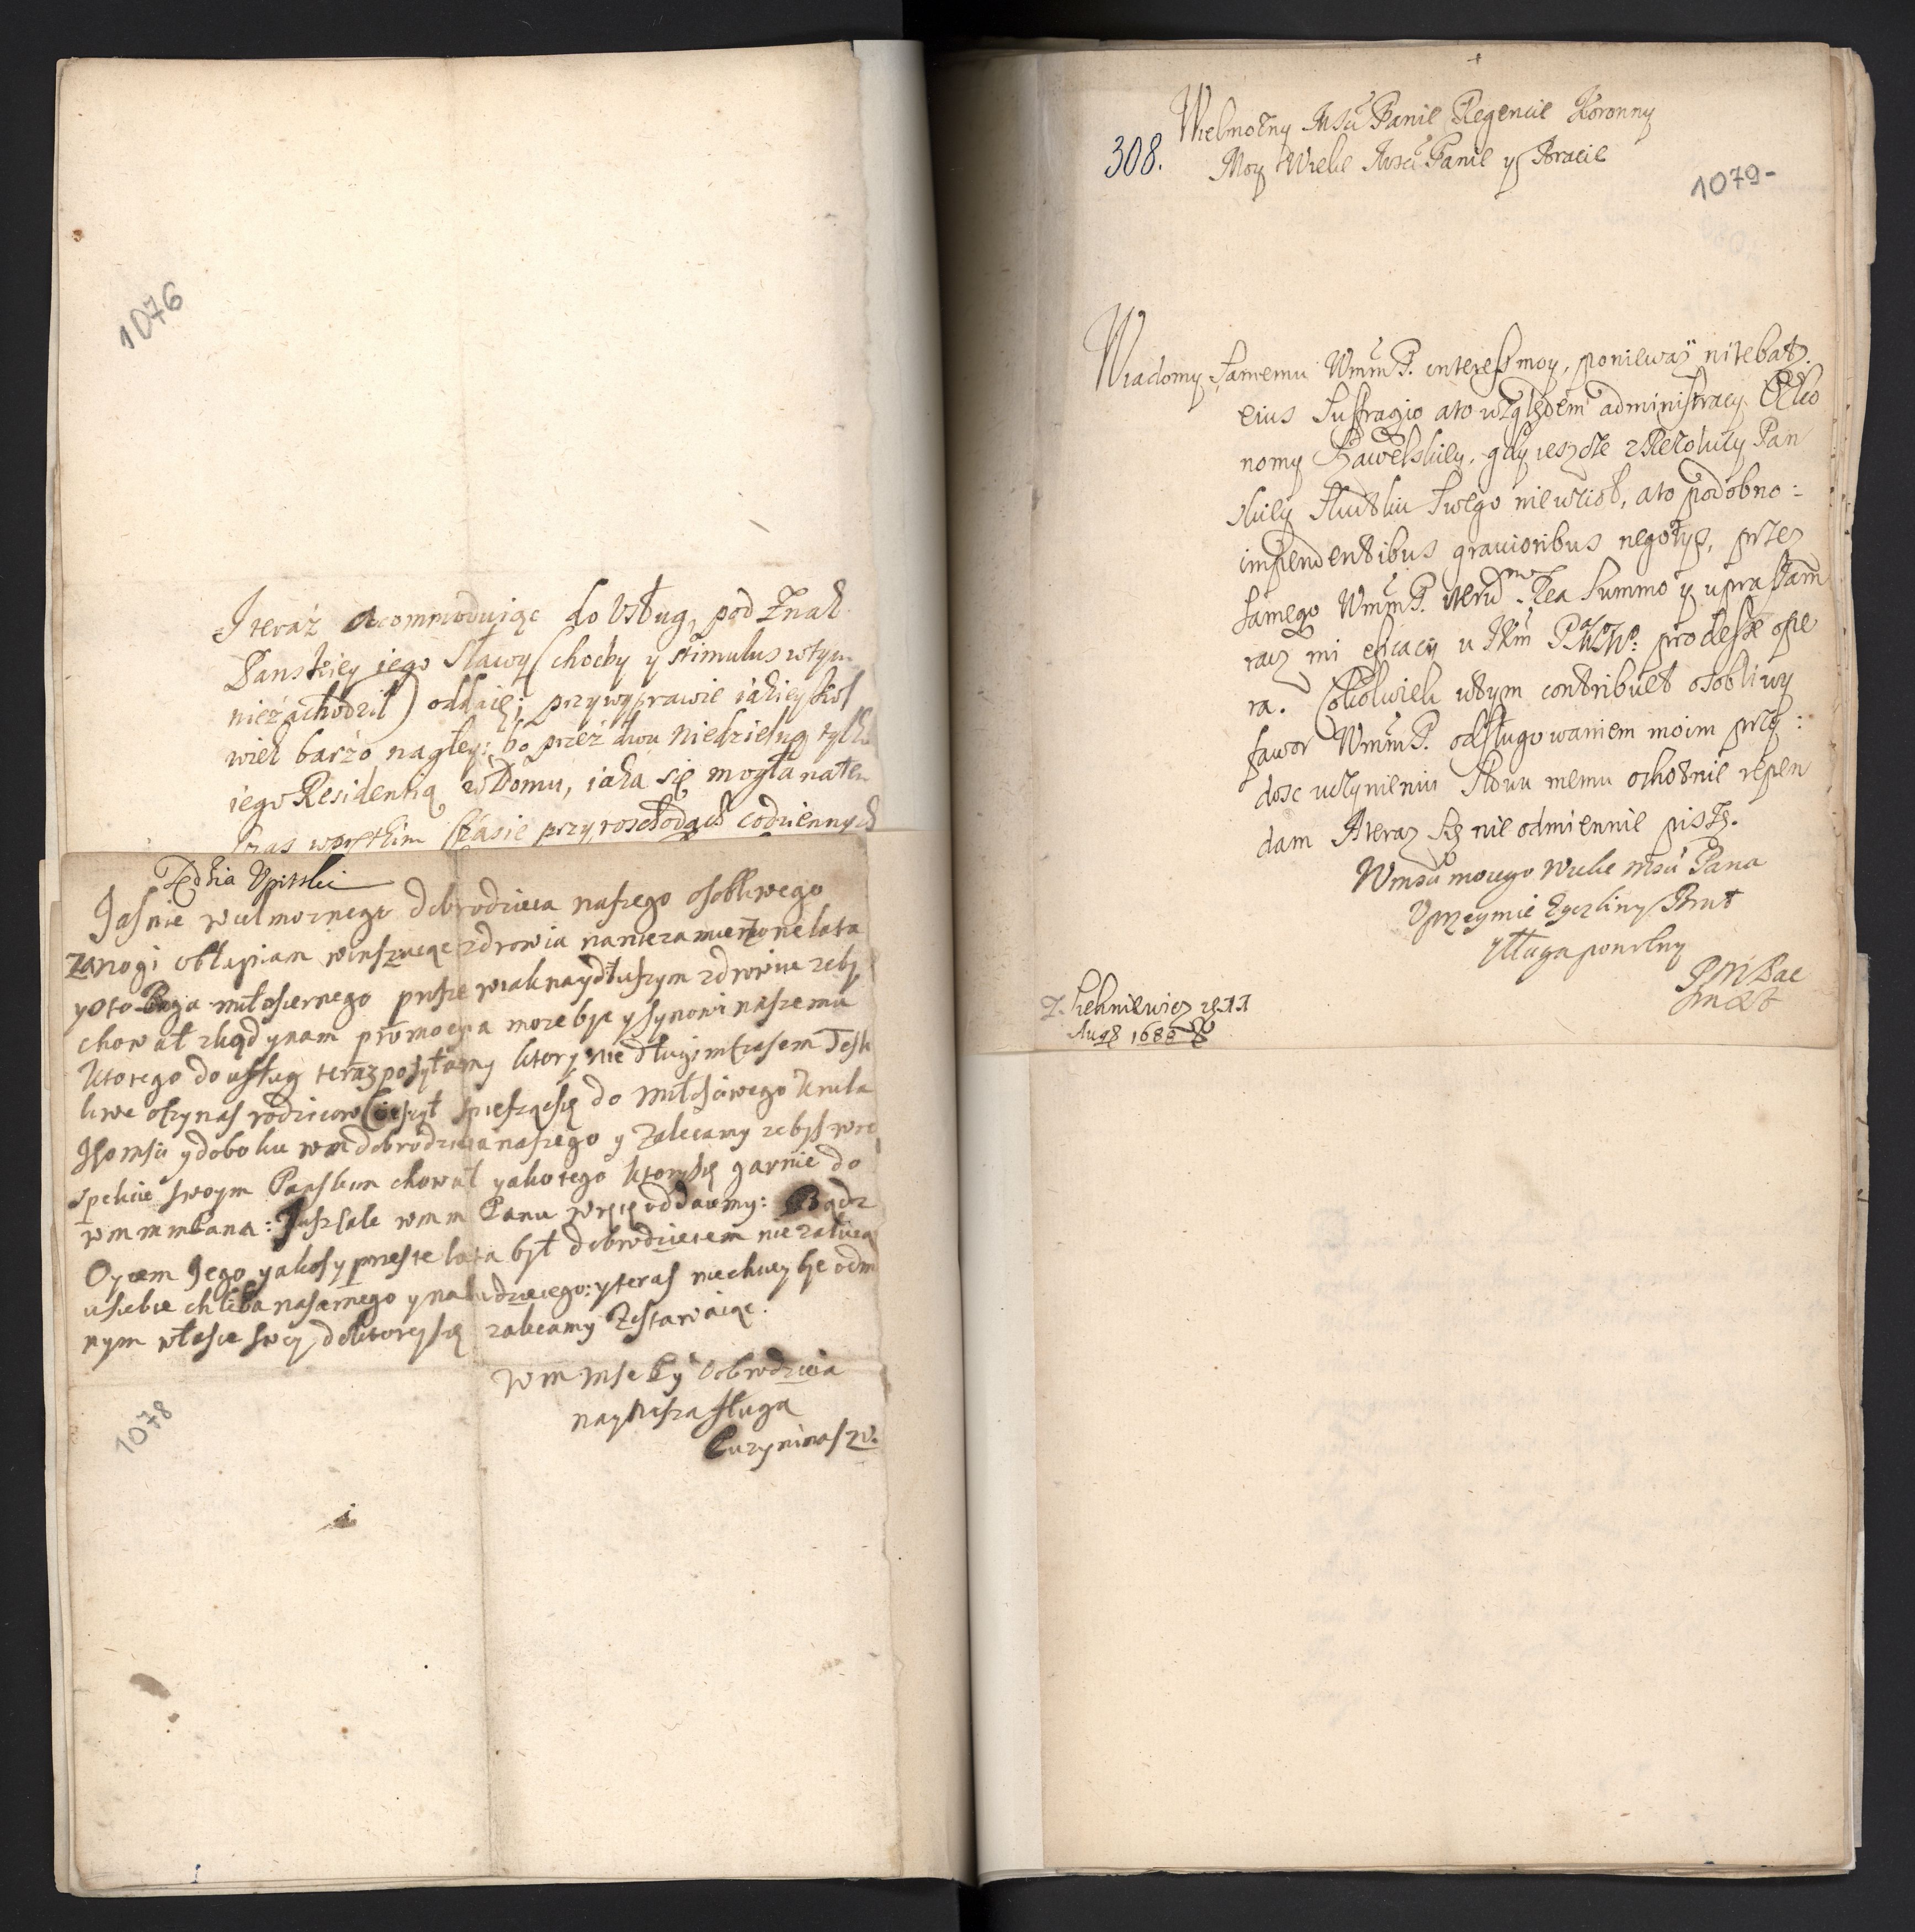 1076
I teraz accommoduiąc do Usług, pod Znak
Panskiey iego Sławy (choćby y stimulus wtym
niezachodził) oddaię; przy wyprawie iakieykol
wiek barzo nagłey: bo przez dwu Niedzielną tylko
iego Residentią w Domu, iaka się mogła naten
czas wprętkim czasie przy roschodach codziennych
Jasnie wielmoznego dobrodzieia naszego osobliwego
Zanogi obłapiam winszuiąc zdrowia naniezamierzone lata
yoto Boga miłosiernego prosze wiaknaydłuszym zdrowiu zeby
chował zkąd ynam promocyia moze byc y synowi naszemu
ktorego do usług teraz posyłamy ktory nie długim czasem Tesk
liwe oczy nas rodzicow cieszył spiesząc się do miłosciwego Krula
Jgomsci ydoboku wm dobrodzieia naszego y Zalecamy zebys wre
spekcie swoym Panskim chował yakotego ktory się garnie do
wmmmPana: Jusz cale wmm Panu wręce oddaiemy: Bądz
Oycem Jego yakosy przeszte lata był dobrodzieiem
usiebie chleba nasamego y teras niechciey byc odm
nym własce swey, doktorey się zalecamy Zostawaiąc.
wm mse dobrodzieia
naynisza sługa
1078
308.
Wielmożny Msci Panie Regencie Koronny
Moy Wielce Mosci Panie y Bracie
1079-
Wiadomy samemu WmmP. interess moy, poniewaz nitebatr
eius suffragio ato względem administracy Oeko
nomy Kawelskiey, gdy ieszcze zRezoluty Pan
skiey skutku swego niewziol, ato podobno:
impendentibus grauioribus negotys, przez
samego WmmP. uprassam
racz mi efficacy u prodesse ope
ra. Cokolwiek wtym contribuet osobliwy
fawor WmmP. odsługowaniem moim przy:
dosc uczynieniu słowu memu ochotnie repen
dam Ateraz się nieodmiennie piszę.
Wmsci mouego Wielce msci Pana
Uprzeymie Zyczliwy Brat
y sługa powolny
PMPac
Z. 
Augt 1688